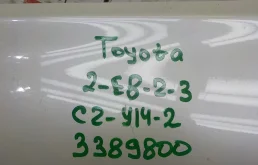 Toyota
2-E8-2-3
C2-У14-2
3389800